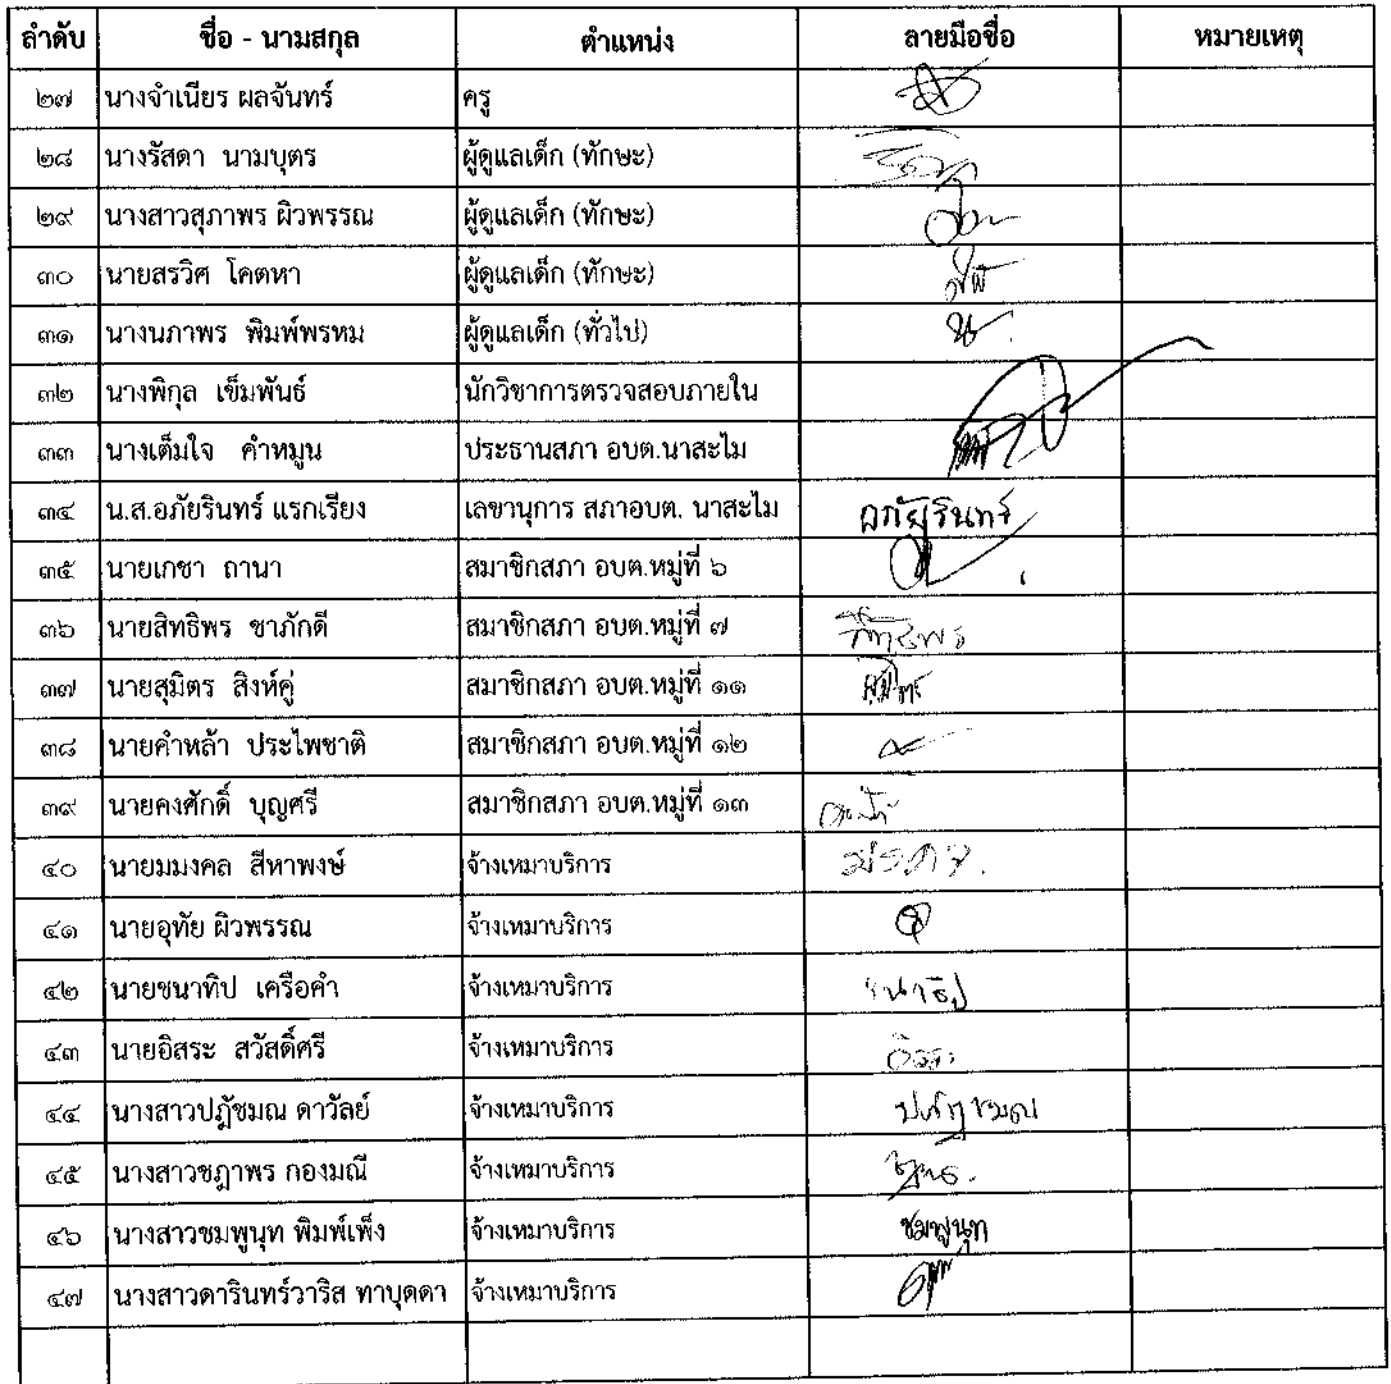 ลำดับ ชื่อ - นามสกุล ตำแหน่ง ลายมือชื่อ หมายเหตุ
๒๗ นางจำเนียร ผลจันทร์ ครู
๒๘ นางรัสดา นามบุตร ผู้ดูแลเด็ก (ทักษะ)
๒๙ นางสาวสุภาพร ผิวพรรณ ผู้ดูแลเด็ก (ทักษะ)
๓๐ นายสรวิศ โคตหา ผู้ดูแลเด็ก (ทักษะ)
๓๑ นางนภาพร พิมพ์พรหม ผู้ดูแลเด็ก (ทั่วไป)
๓๒ นางพิกุล เข็มพันธ์ นักวิชาการตรวจสอบภายใน
๓๓ นางเต็มใจ คำหมูน ประธานสภา อบต.นาสะไม
๓๔ น.ส.อภัยรินทร์ แรกเรียง เลขานุการ สภาอบต. นาสะไม อภัยรินทร์
๓๕ นายเกชา ถานา สมาชิกสภา อบต.หมู่ที่ ๖
๓๖ นายสิทธิพร ชาภักดี สมาชิกสภา อบต.หมู่ที่ ๗
๓๗ นายสุมิตร สิงห์คู่ สมาชิกสภา อบต.หมู่ที่ ๑๑
๓๘ นายคำหล้า ประไพชาติ สมาชิกสภา อบต.หมู่ที่ ๑๒
๓๙ นายคงศักดิ์ บุญศรี สมาชิกสภา อบต.หมู่ที่ ๑๓
๔๐ นายมมงคล สีหาพงษ์ จ้างเหมาบริการ
๔๑ นายอุทัย ผิวพรรณ จ้างเหมาบริการ
๔๒ นายชนาทิป เครือคำ จ้างเหมาบริการ
๔๓ นายอิสระ สวัสดิ์ศรี จ้างเหมาบริการ อิสระ
๔๔ นางสาวปฎัชมณ ดาวัลย์ จ้างเหมาบริการ
๔๕ นางสาวชฎาพร กองมณี จ้างเหมาบริการ
๔๖ นางสาวชมพูนุท พิมพ์เพ็ง จ้างเหมาบริการ ชมพูนุท
๔๗ นางสาวดารินทร์วาริส ทาบุดดา จ้างเหมาบริการ